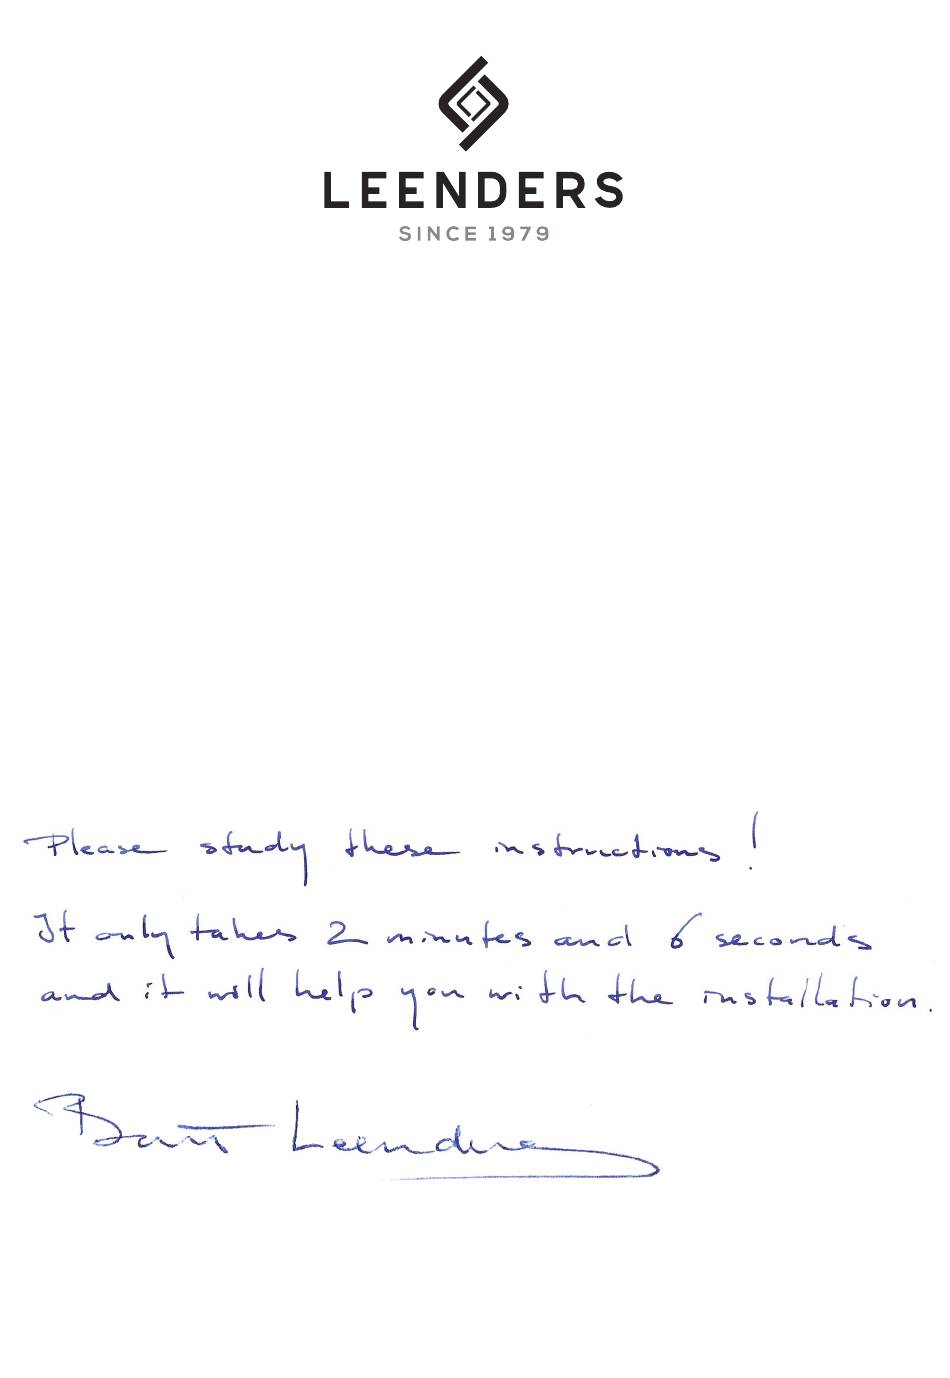 LEENDERS
SINCE 1979
Please study these instructions!
It only takes 2 minutes and 6 seconds
and it will help you with the installation.
Bart Leenders